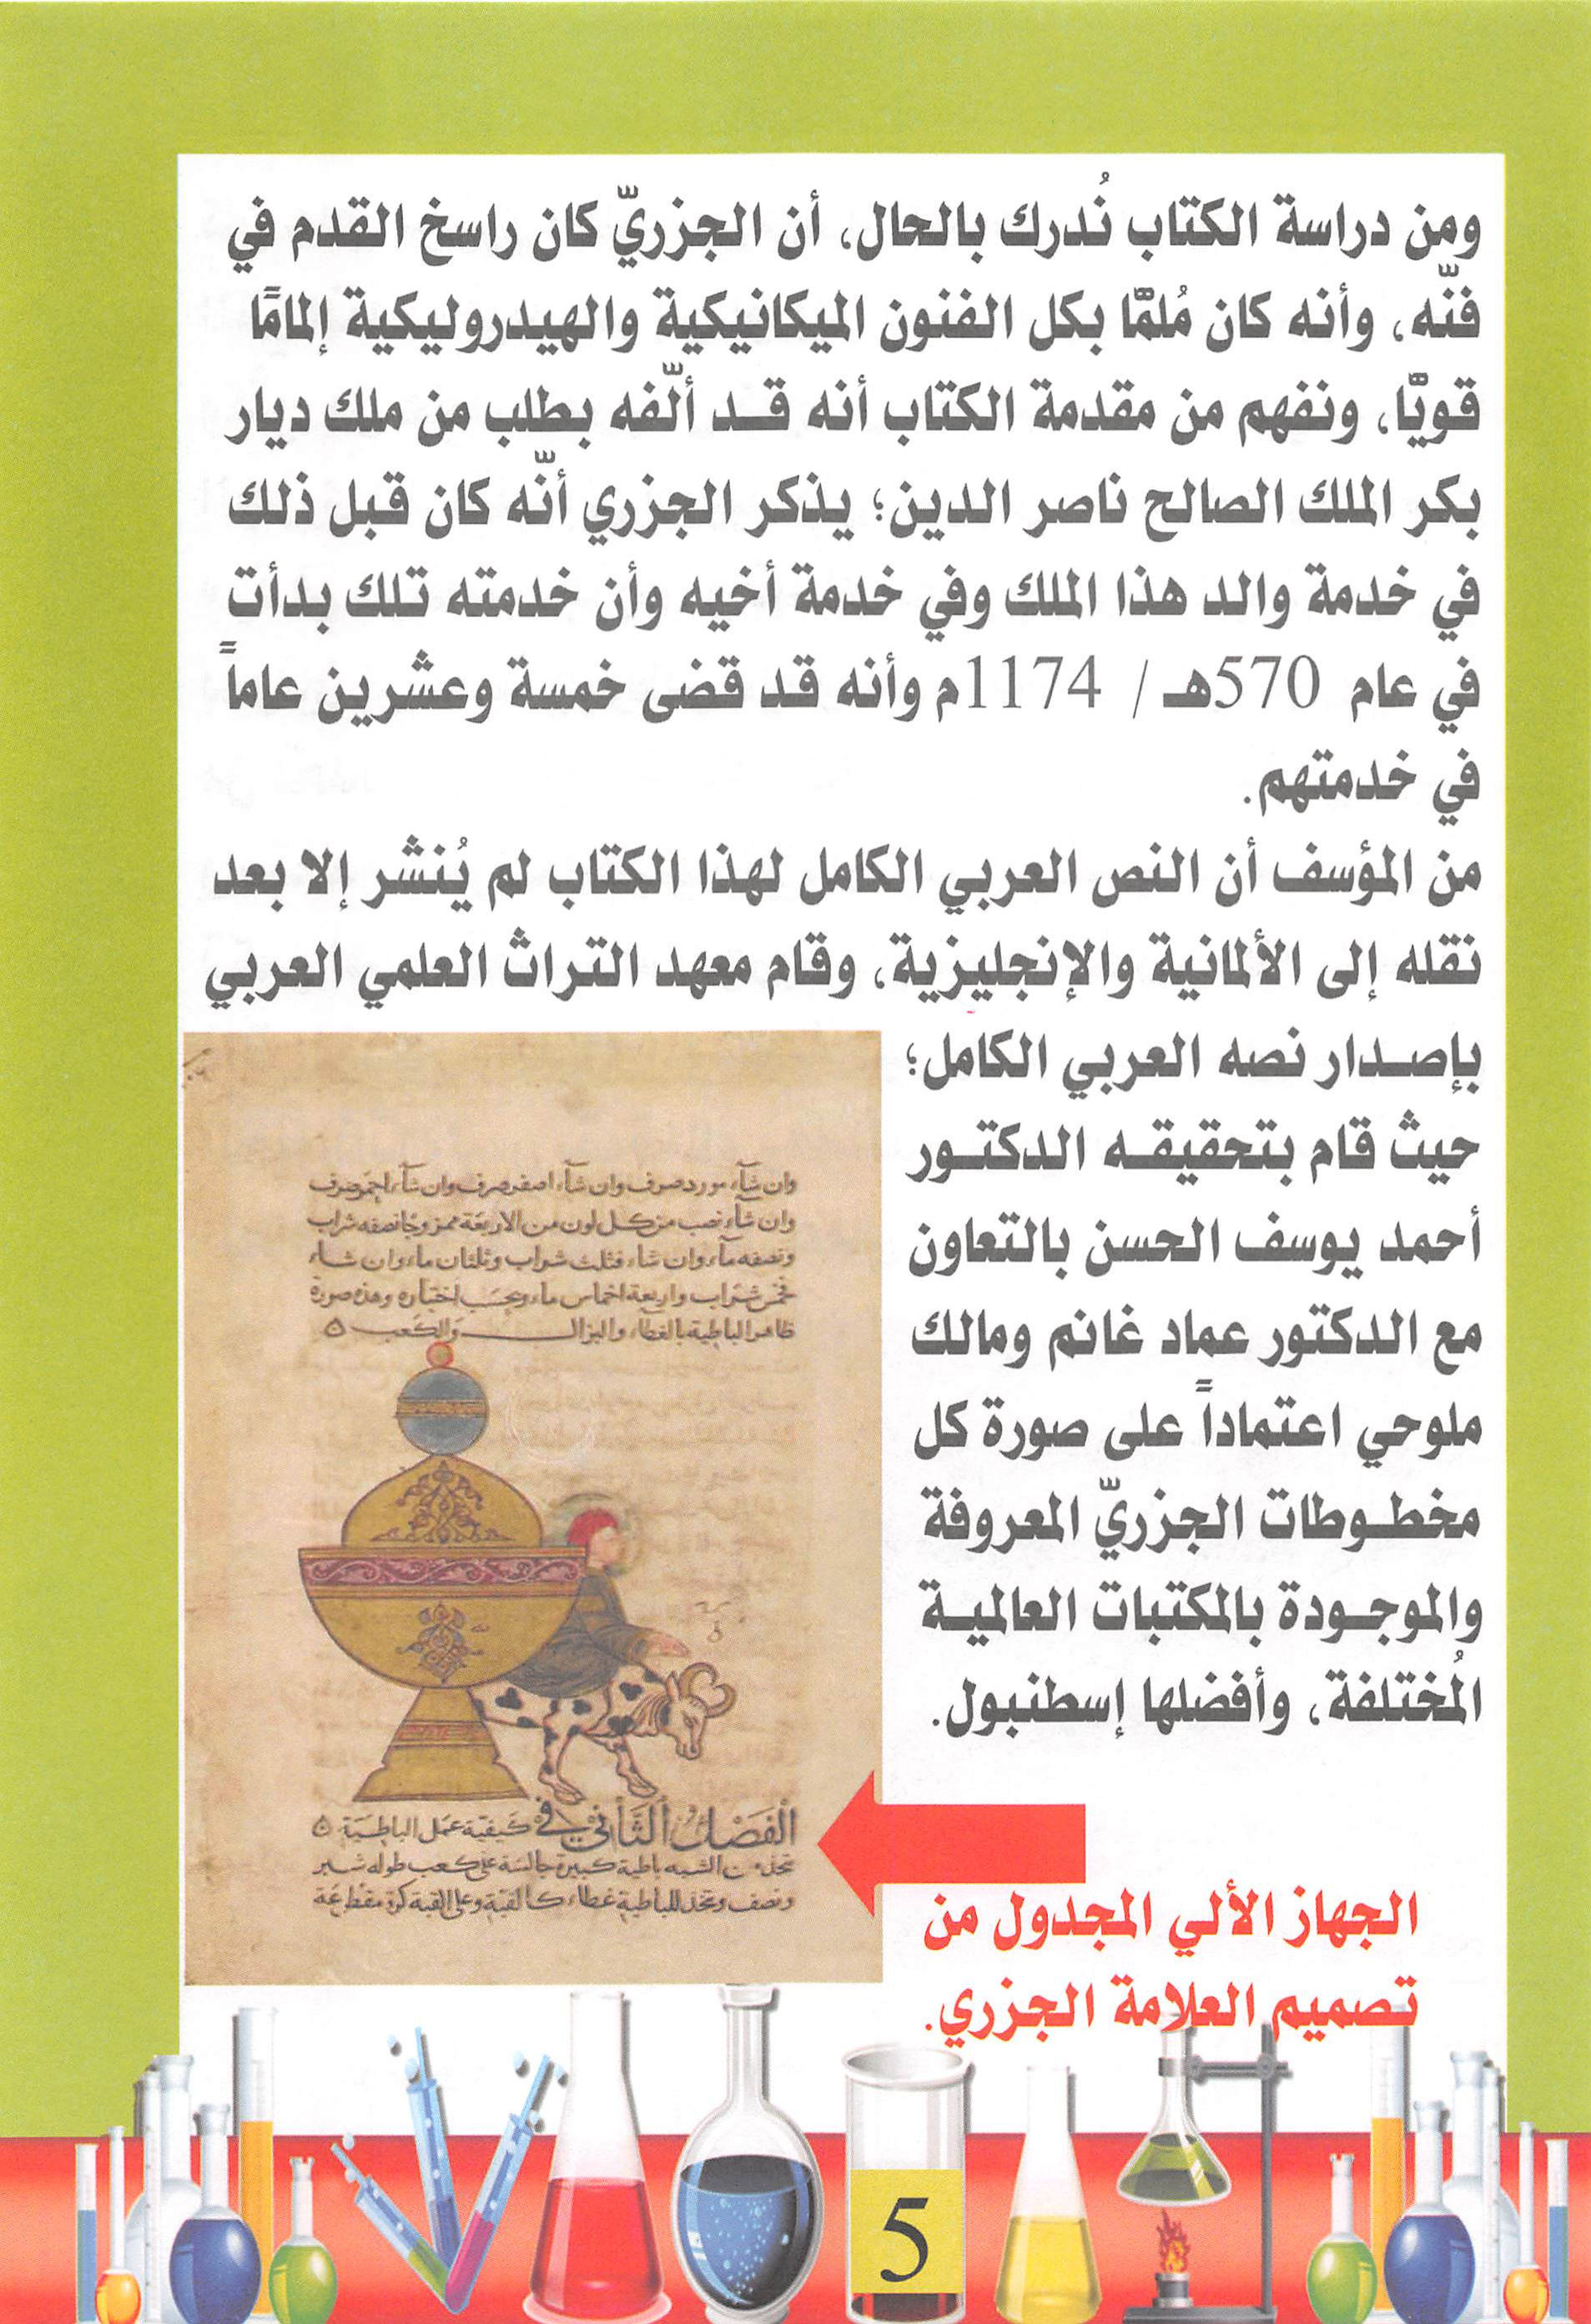 ومن دراسة الكتاب نُدرك بالحال، أن الجزريّ كان راسخ القدم في
فنّه، وأنه كان مُلمًّا بكل الفنون الميكانيكية والهيدروليكية إلمامًا
قويًّا، ونفهم من مقدمة الكتاب أنه قد ألّفه بطلب من ملك ديار
بكر الملك الصالح ناصر الدين؛ يذكر الجزري أنّه كان قبل ذلك
في خدمة والد هذا الملك وفي خدمة أخيه وأن خدمته تلك بدأت
في عام 570هـ / 1174م وأنه قد قضى خمسة وعشرين عاماً
في خدمتهم.
من المؤسف أن النص العربي الكامل لهذا الكتاب لم يُنشر إلا بعد
نقله إلى الألمانية والإنجليزية، وقام معهد التراث العلمي العربي
بإصدار نصه العربي الكامل؛
حيث قام بتحقيقه الدكتور
أحمد يوسف الحسن بالتعاون
مع الدكتور عماد غانم ومالك
ملوحي اعتماداً على صورة كل
مخطوطات الجزريّ المعروفة
والموجودة بالمكتبات العالمية
المُختلفة، وأفضلها إسطنبول.
وان شآء مورد صرف وان شآء اصفر صرف وان شآء احمر صرف
وان شآء نصب من كل لون من الاربعة ممزوجا نصفه شراب
ونصفه مآء وان شاء فثلث شراب وثلثان ماء وان شاء
فخمس شراب واربعة اخماس ماء وبحسب اختياره وهذه صورة
ظاهر الباطية بالغطاء والبزال والكعب
الفصل الثاني في كيفية عمل الباطية
تتخذ من الشبه باطية كبيرة جالسة على كعب طوله شبر
ونصف وتتخذ للباطية غطاء كالقبة وعلى القبة كرة مقطعة
الجهاز الألي المجدول من
تصميم العلامة الجزري.
5